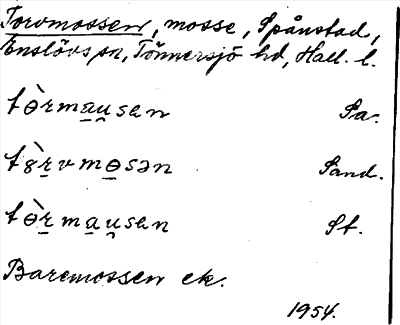 Torvmossen, mosse, Spånstad,
Enslövs sn, Tönnersjö hd, Hall. l.
tɵ̀rmau̯sen Sa.
tɵ̀rvmɵsən Sand.
tɵ̀rmau̯sen St.
Baremossen ek.
1954.